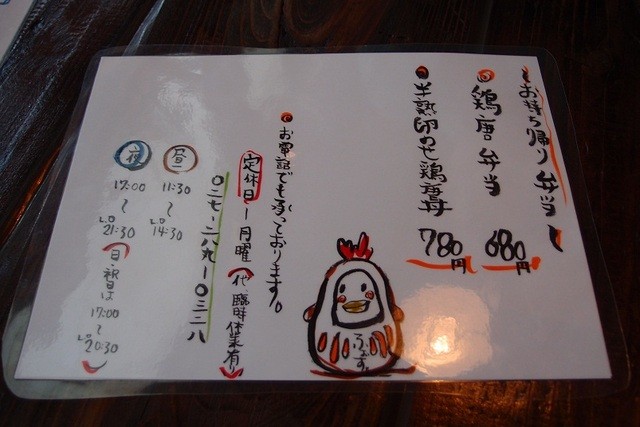 お持ち帰り弁当
鶏唐弁当 680円
半熟卵のせ鶏唐丼 780円
お電話でも承っております。
定休日-月曜(他、臨時休業有り)
〇二七-二八九-〇三二八
昼 11:30~L.O14:30
夜 17:00~L.O21:30
(日・祝日は17:00~L.O20:30)